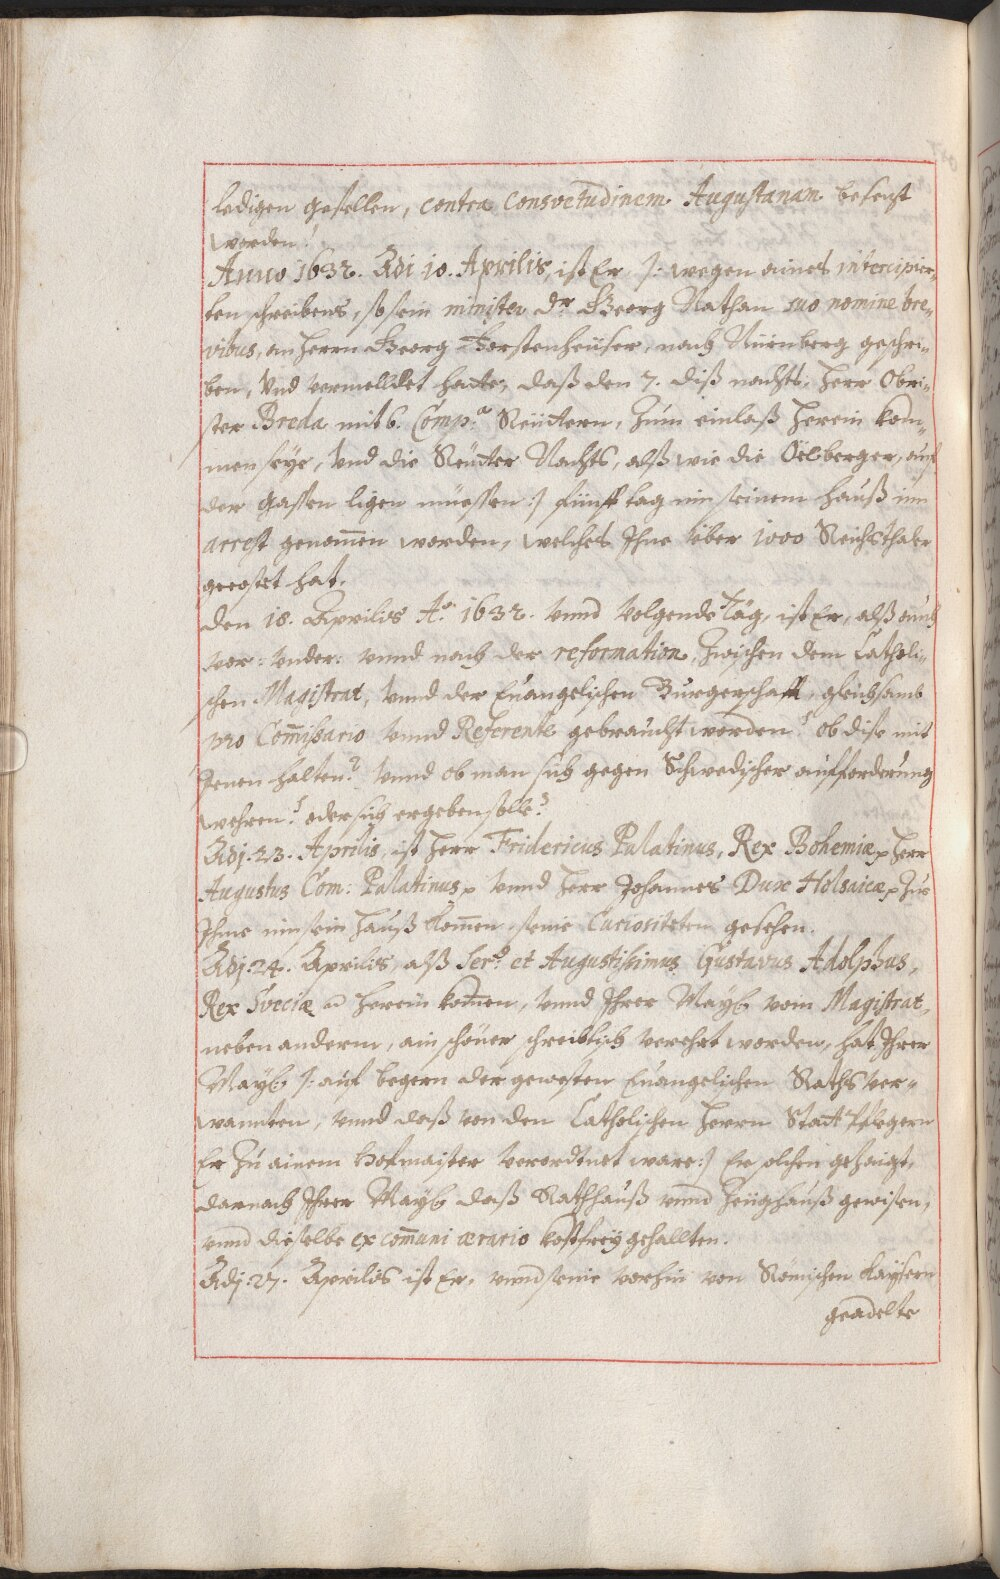 ledigen gesellen, contra Consvetudinem Augustanam besetzt
worden.
Anno 1632. Adi 10. Aprilis, ist Er /: wegen aines intercipier„
ten schreibens, so sein minister dr Georg Nathan suo nomine bre„
vibus, an Herrn Georg Forstenheüser, nach Nürnberg geschri„
ben, Vnd vermelldet hatte, daß den 7. diß nachts, Herr Obri„
ster Breda mit 6. Comp:a Reüttern, Zum einlaß herein kom„
men seye, Vnd die Reutter Nachts, alß wie die Öelberger, auf
der Gassen ligen müessen :/ fünff tag inn seinem hauß inn
arrest genommen worden, welches Ihne über 1000 Reichsthaler
gecostet hat.
Den 18. Aprilis Ao. 1632. vnnd volgende Täg, ist Er, alß auch
vor: vnder: vnnd nach der reformation, Zwischen dem Catholi„
schen Magistrat, vnnd der Euangelischen Burgerschafft, gleichsamb
pro Com̄issario vnnd Referente gebraucht worden? ob dise mit
Jenen halten? Vnnd ob man sich gegen Schwedischer aufforderung
wehren? oder sich ergeben solle?
Adj. 23. Aprilis, ist Herr Fridericus Palatinus, Rex Bohemiæ, Herr
Augustus Com: Palatinus, vnnd Herr Johannes Dux Holsaicæ, Zue
Ihme inn sein hauß kom̄en, seine Curiositeten gesehen.
Adj: 24. Aprilis, alß Ser.o et Augustissimus Gustavus Adolphus,
Rex Sveciæ herein kom̄en, vnnd Ihrer Mayt. vom Magistrat,
neben anderm, ain schöner schreibtisch verehrt worden, hat Ihrer
Mayt. /: auf begern der gewesten Euangelischen Raths ver„
wanndten, vnnd daß von den Catholischen Herrn Statt Pflegern
Er Zu ainem Hofmaister verordnet ware :/ Er solchen gezaigt,
darnach Ihrer Mayt. daß Rathhauß vnnd Zeüghauß gewisen,
vnnd dieselbe ex com̄uni ærario kostfrey gehallten.
Adj: 27. Aprilis ist Er, vnnd seine vorhin von Römischen Kaysern
geadelte